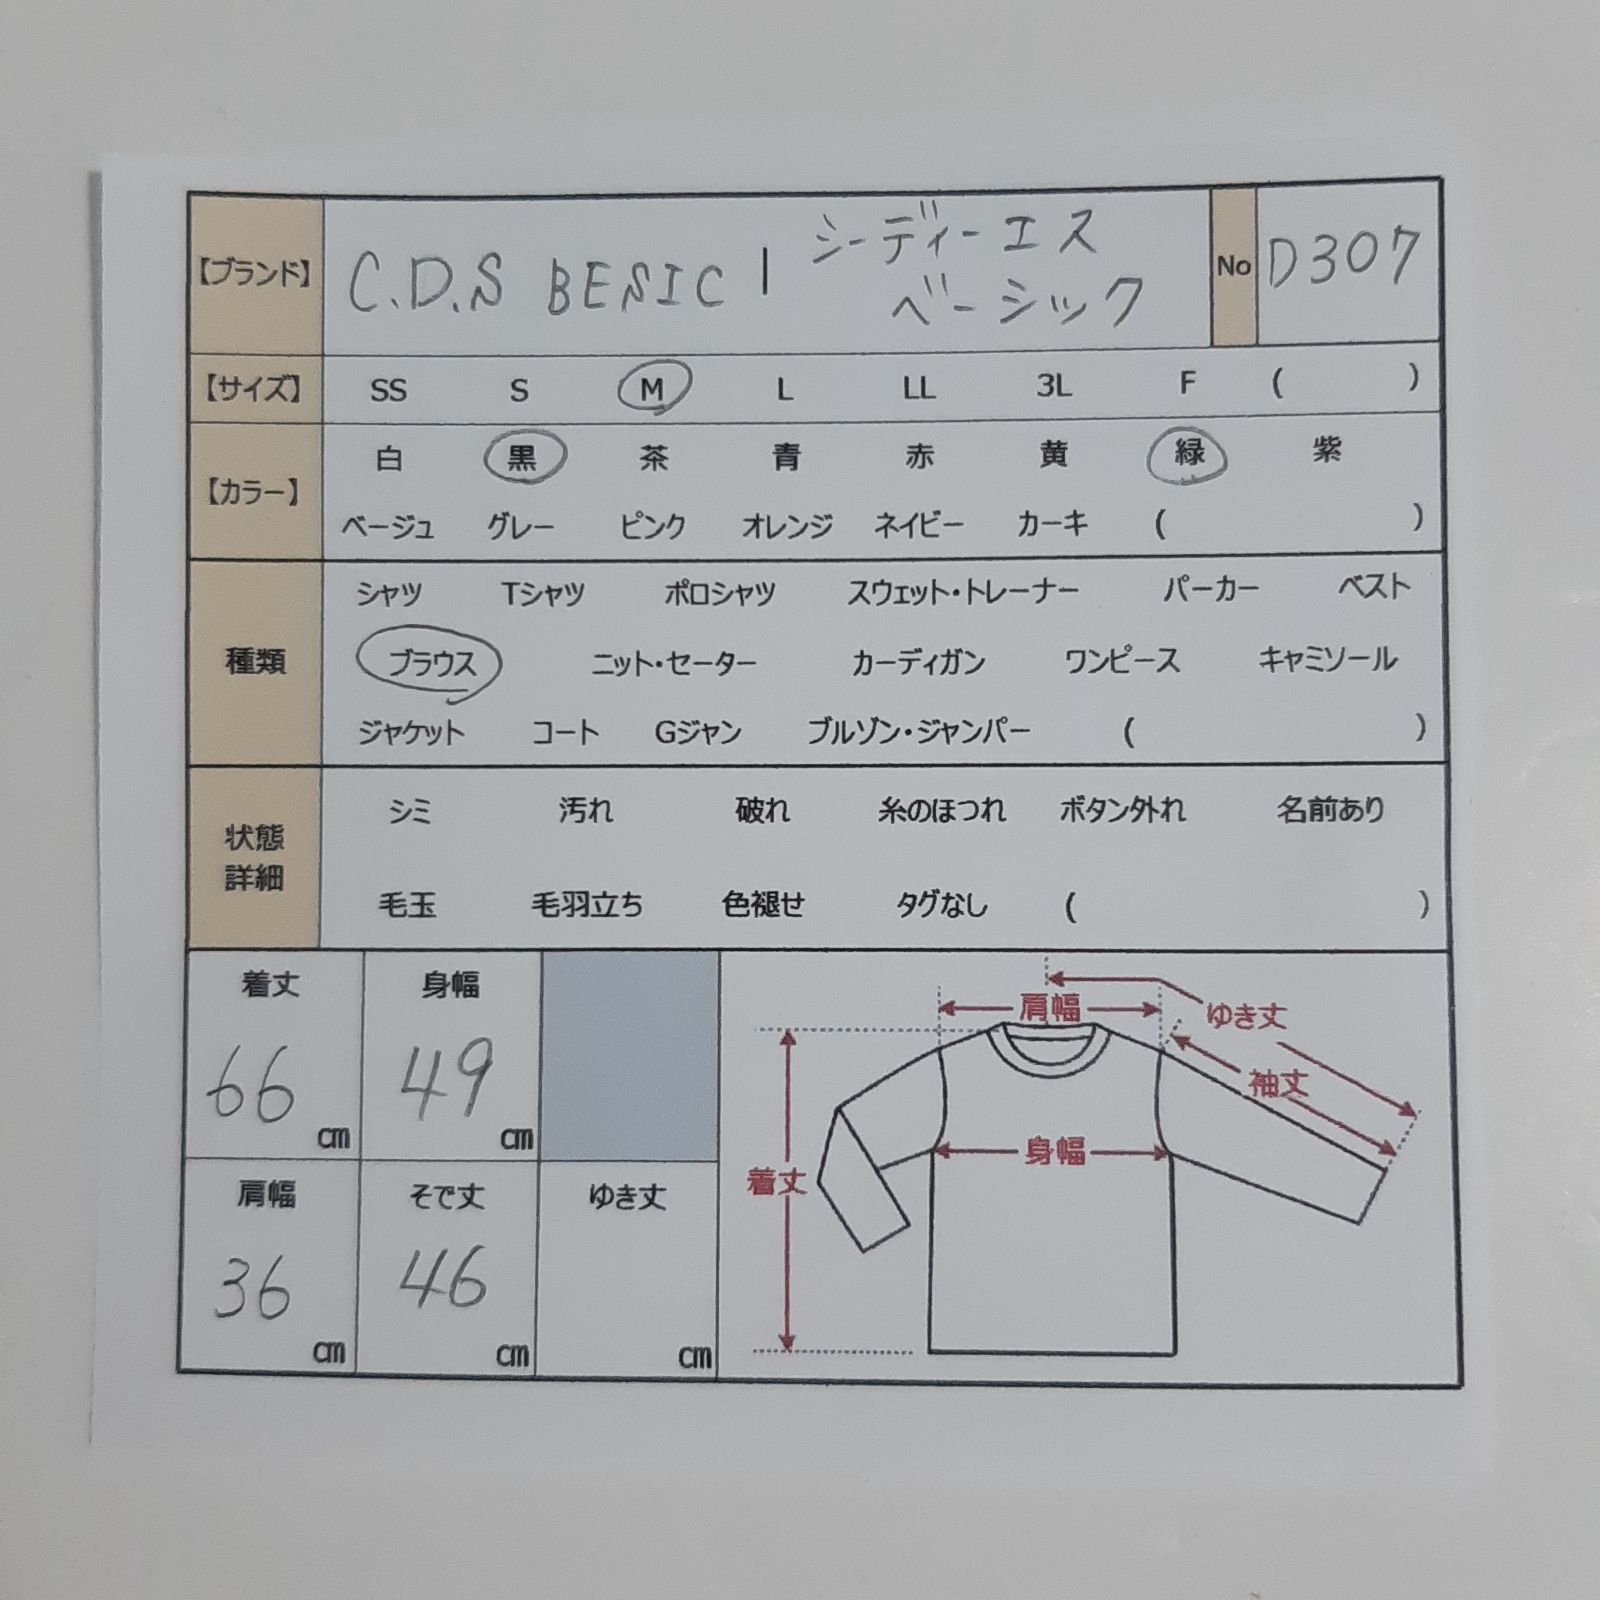 【ブランド】 C.D.S BESIC | シーディーエス ベーシック No D307
【サイズ】 SS S M L LL 3L F ( )
【カラー】 白 黒 茶 青 赤 黄 緑 紫
ベージュ グレー ピンク オレンジ ネイビー カーキ ( )
種類 シャツ Tシャツ ポロシャツ スウェット・トレーナー パーカー ベスト
ブラウス ニット・セーター カーディガン ワンピース キャミソール
ジャケット コート Gジャン ブルゾン・ジャンパー ( )
状態詳細 シミ 汚れ 破れ 糸のほつれ ボタン外れ 名前あり
毛玉 毛羽立ち 色褪せ タグなし ( )
着丈 身幅
66 cm 49 cm
肩幅 そで丈 ゆき丈
36 cm 46 cm cm
肩幅 ゆき丈
袖丈
身幅
着丈